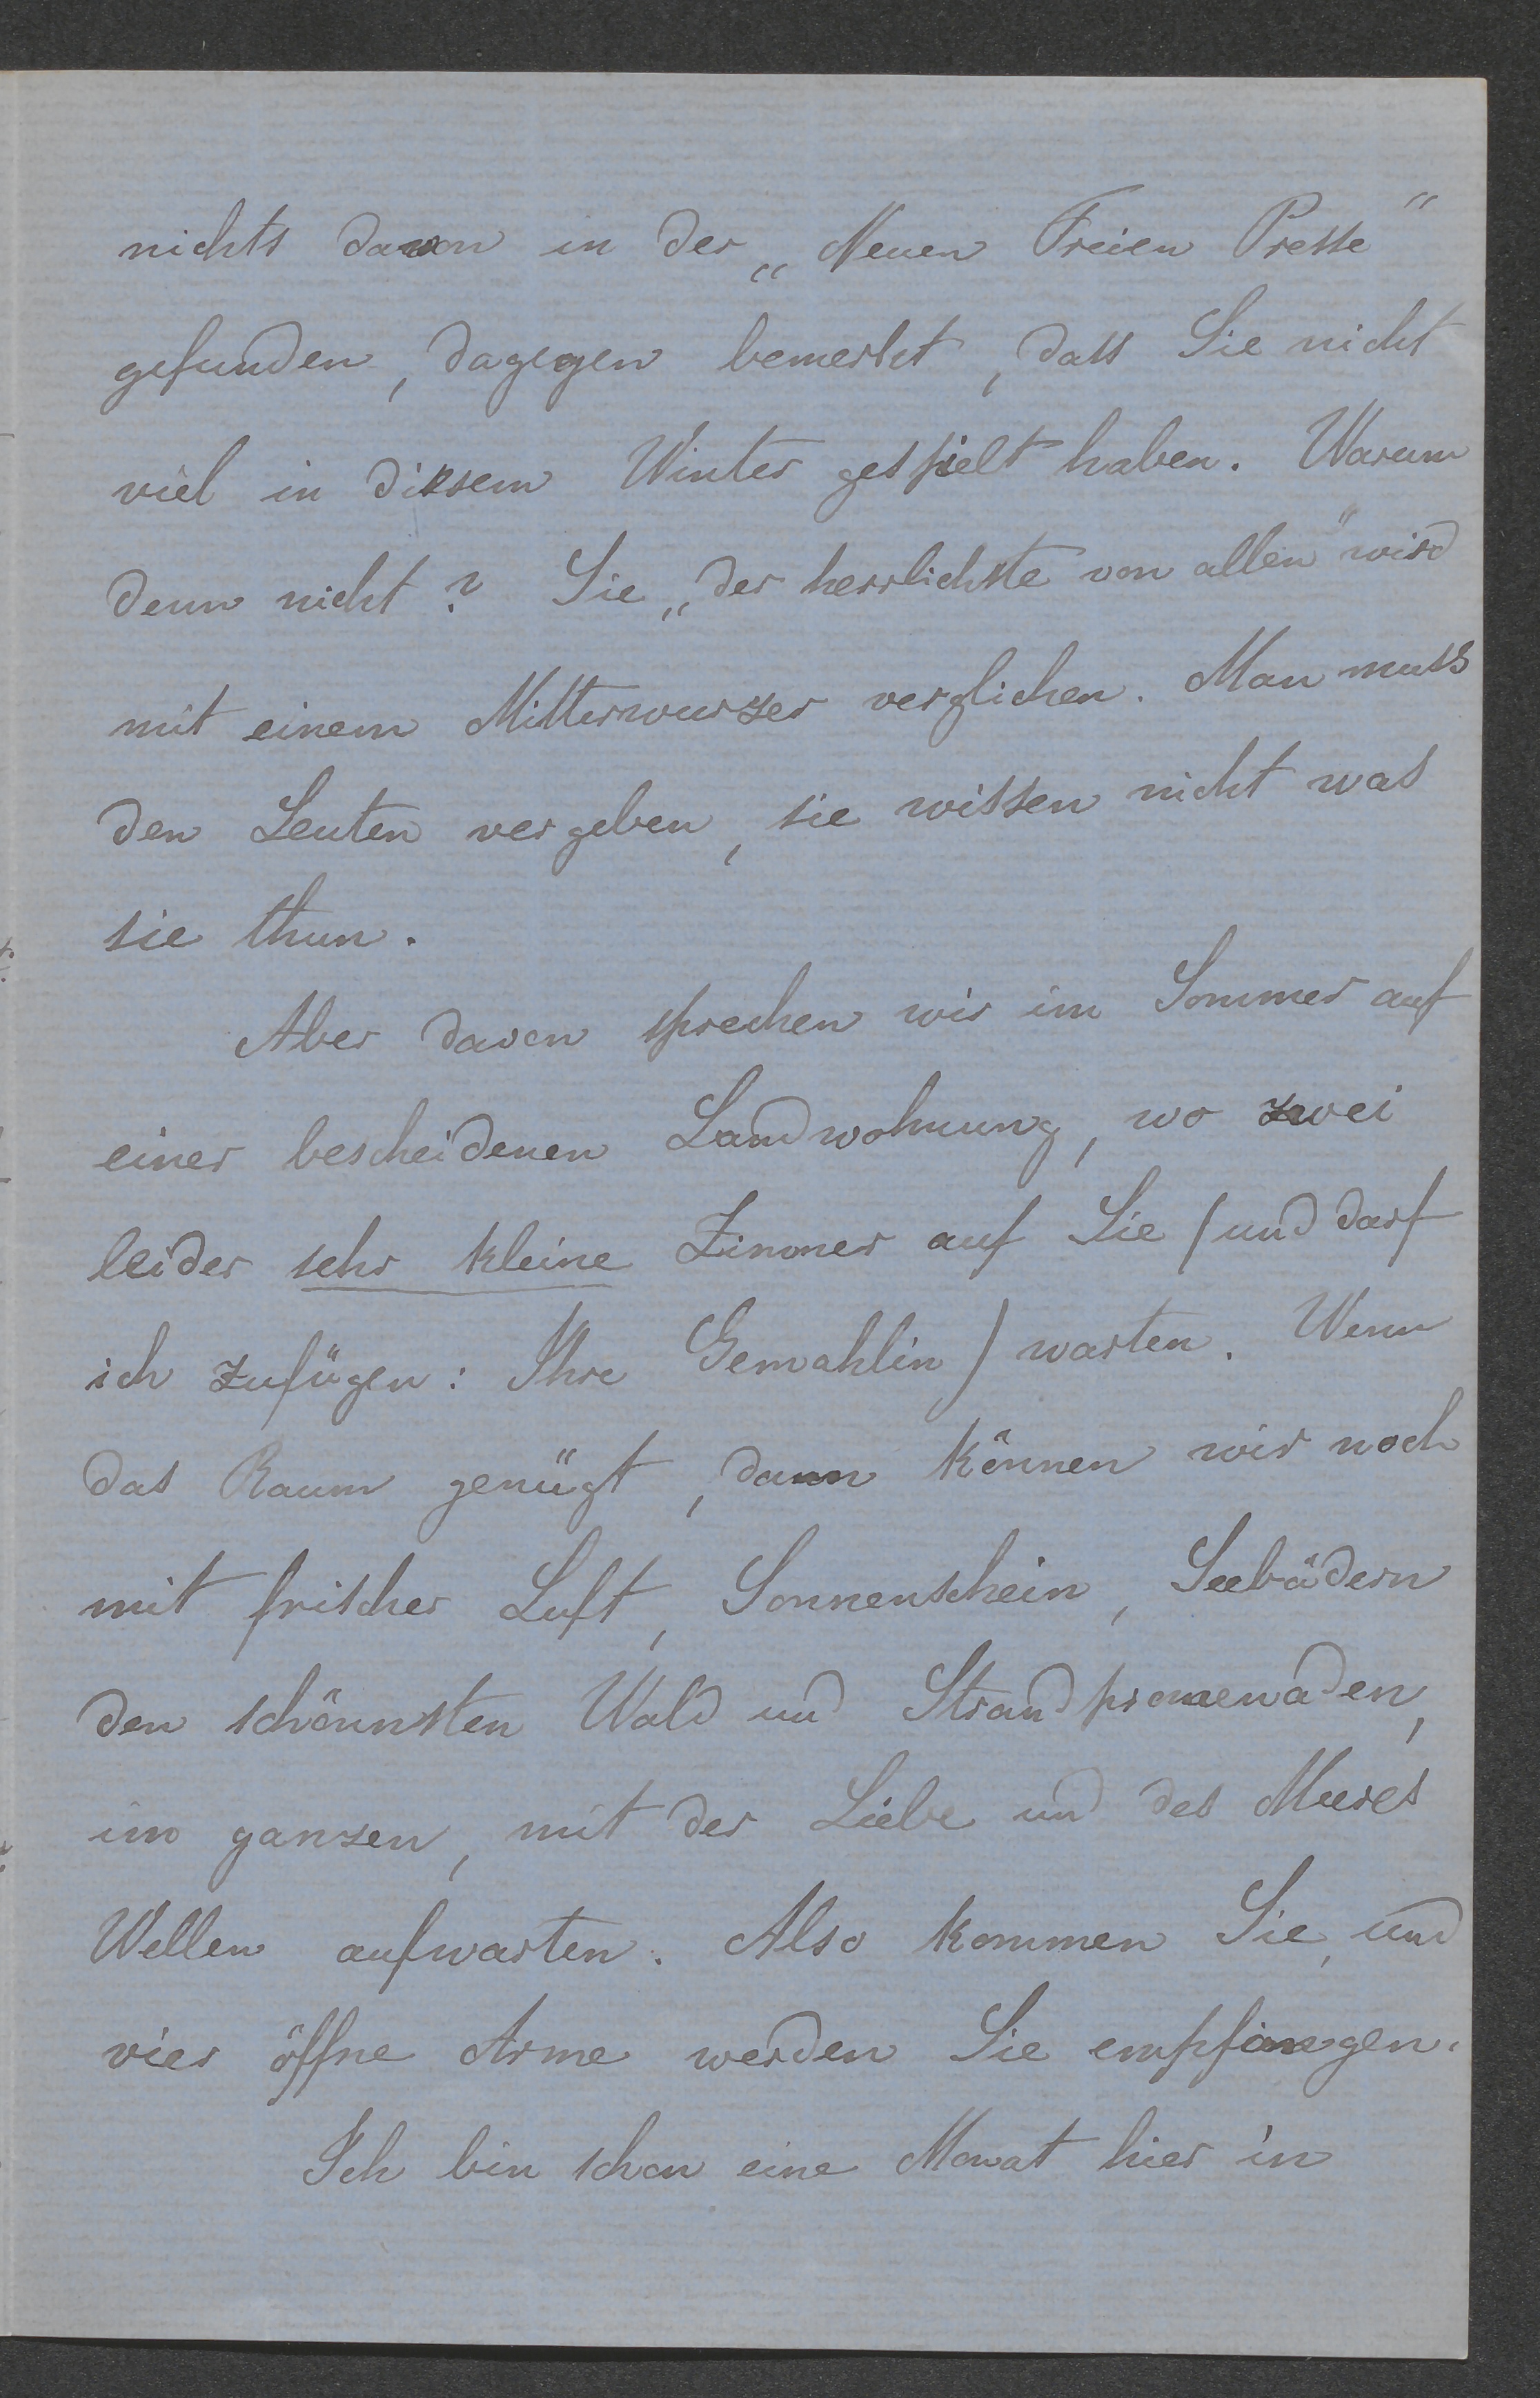 nichts davon in der „Neuen Freien Presse“
gefunden, dagegen bemerkt, dass Sie nicht
viel in diesem Winter gespielt haben. Warum
denn nicht? Sie „der herrlichste von allen“ wird
mit einem Mitterwurzer verglichen. Man muss
den Leuten vergeben, sie wissen nicht was
sie thun.
Aber davon sprechen wir im Sommer auf
einer bescheidenen Landwohnung, wo zwei
leider sehr kleine Zimmer auf Sie (und darf
ich zufügen: Ihre Gemahlin) warten. Wenn
das Raum genügt, dann können wir noch
mit frischer Luft, Sonnenschein, Seebädern
den schönnsten Wald und Strandpromenaden,
im ganzen, mit der Liebe und des Meeres
Wellen aufwarten. Also kommen Sie, und
vier öffne Arme werden Sie empfangen.
Ich bin schon eine Monat hier in